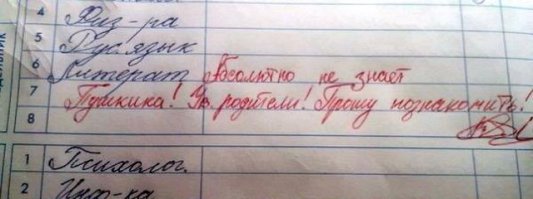 4 Физ-ра
5 Рус. язык
6 Литерат. Абсолютно не знает
7 Пушкина! Ув. родители! Прошу познакомить!
8
1 Психолог.
2 Инф-ка